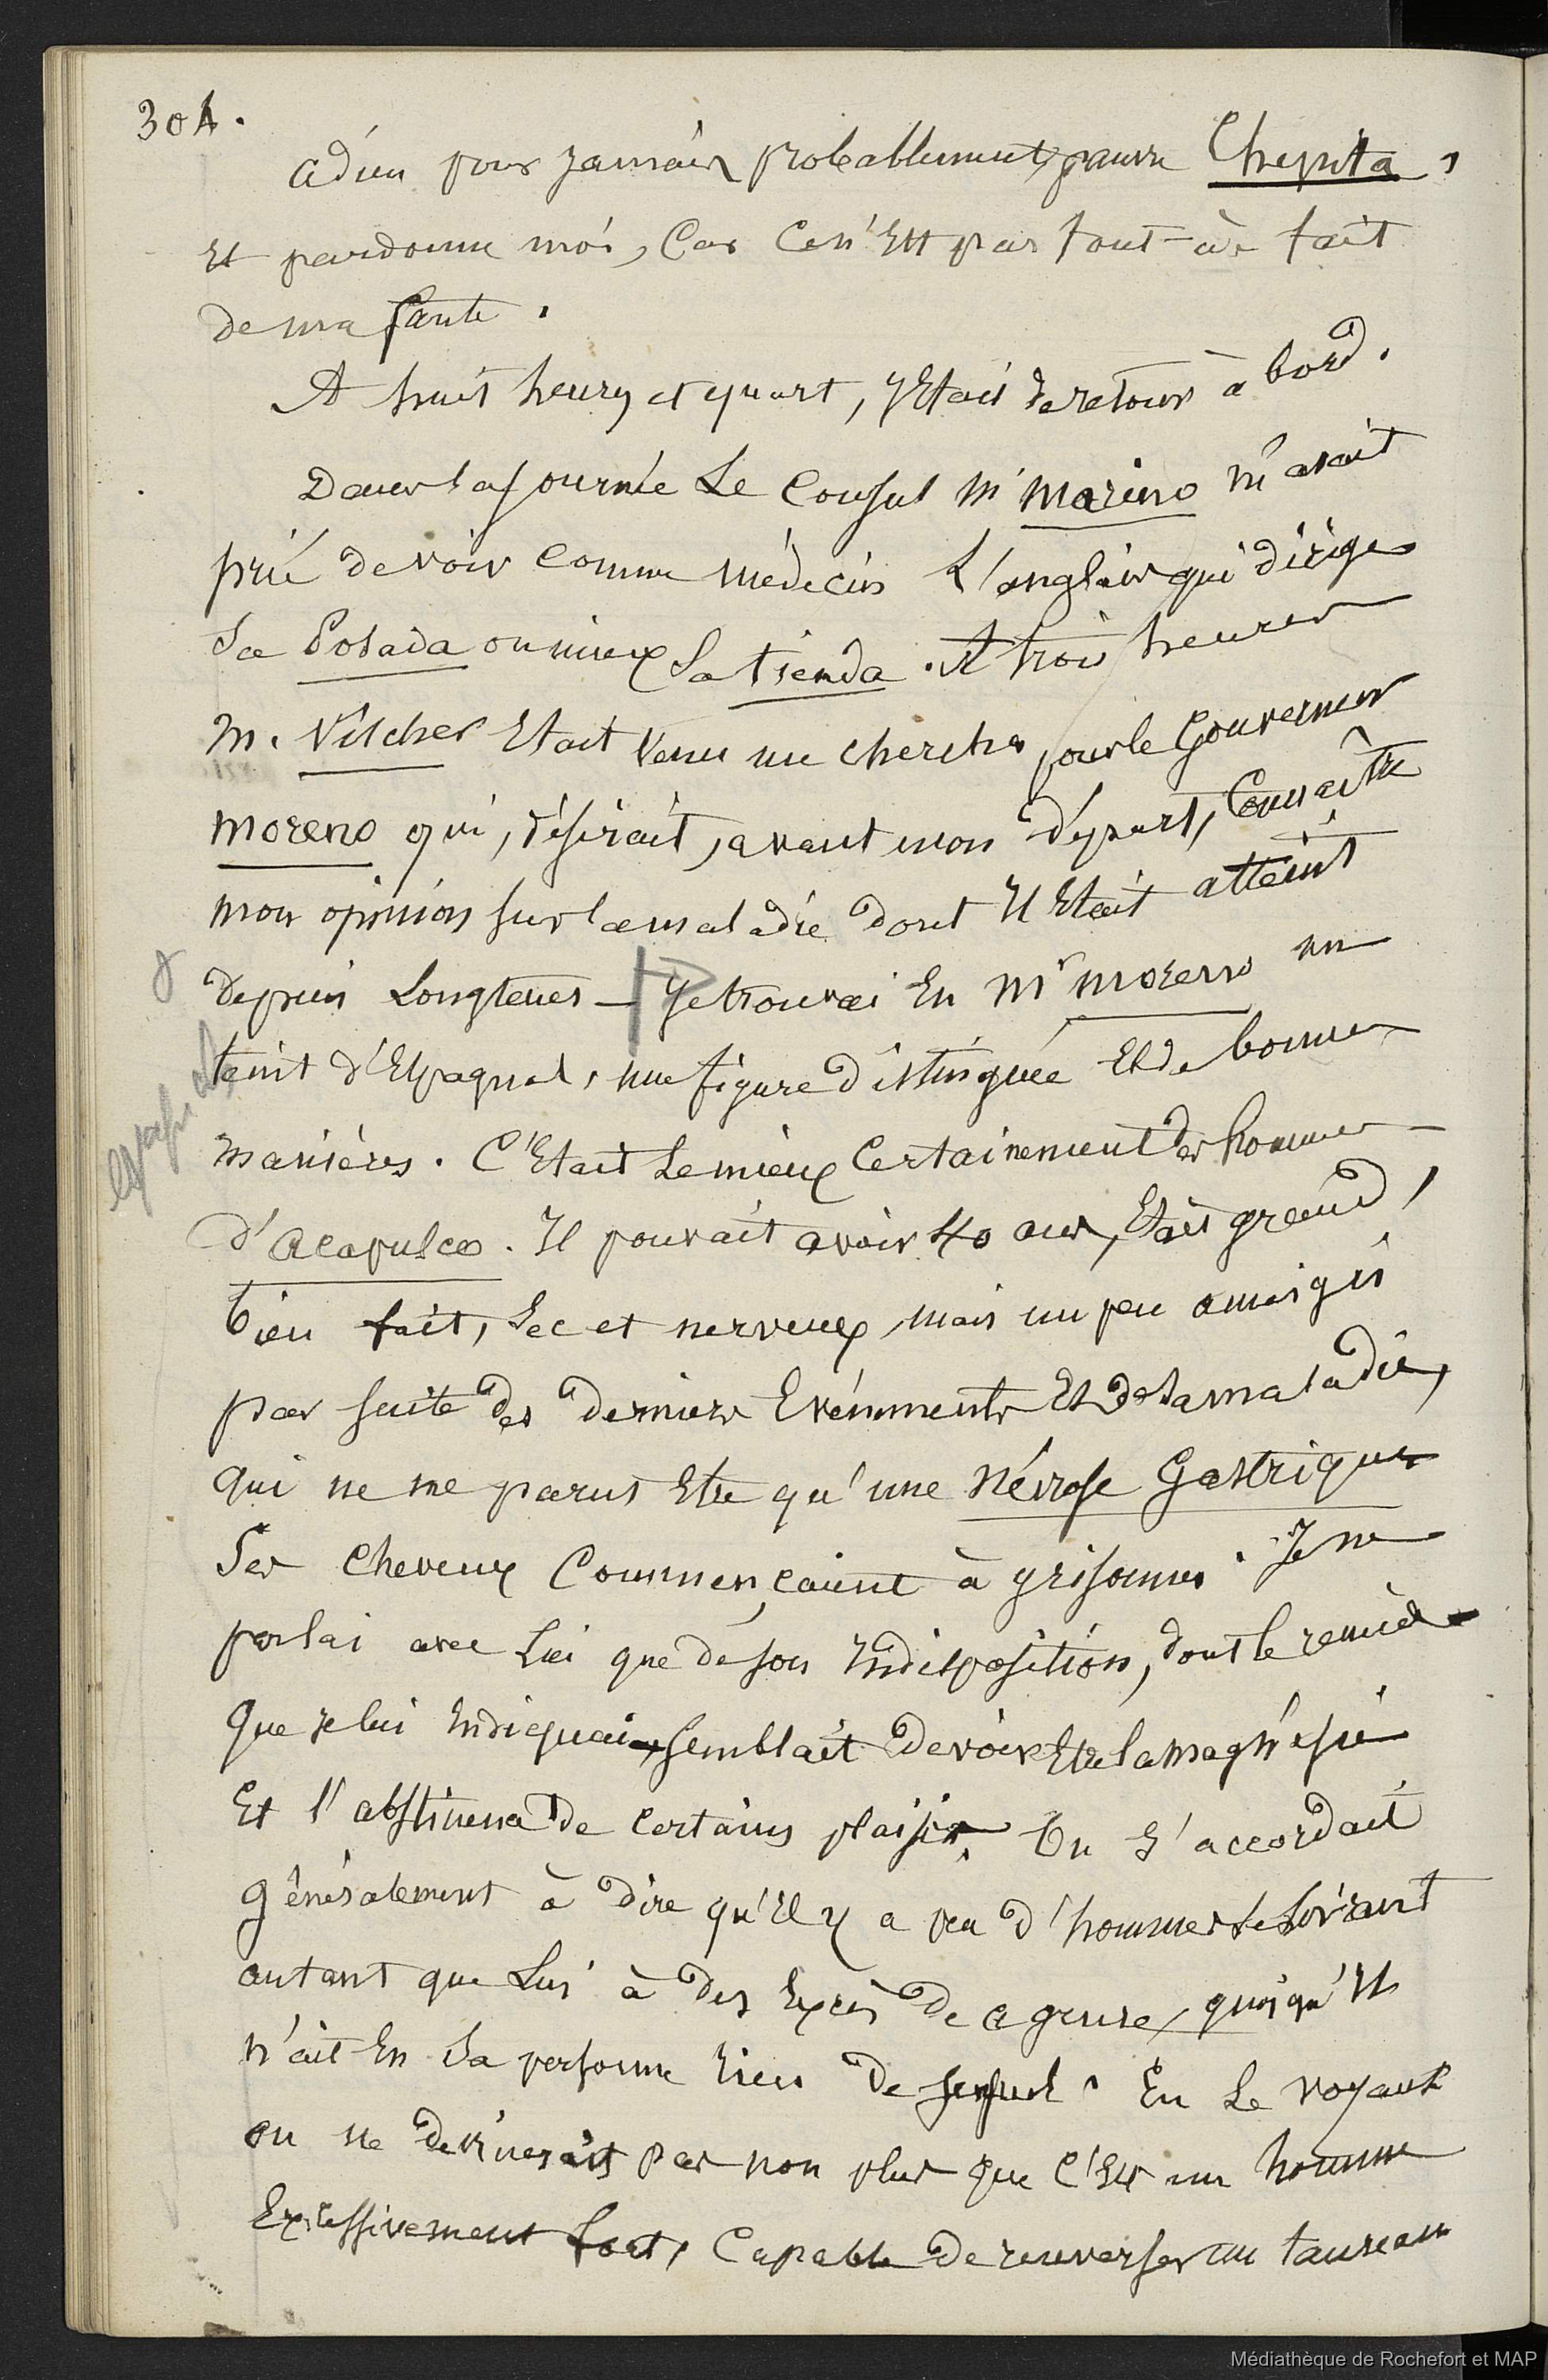 304.
adieu pour jamais probablement, pauvre Chepita,
Et pardonne moi, Car Ce n'Est pas tout-à-fait
de ma faute.
A huit heures et quart, j'Etais de retour à bord.
Dans la journée Le Consul Mr Marino m'avait
prié de voir Comme médecin L'anglais qui dirige
La Posada ou mieux La tienda. A trois heures
M. Vilcher Etait Venu me chercher pour le Gouverneur
Moreno qui, désirait, avant mon départ, Connaître
mon opinion sur la maladie dont Il Etait atteint
depuis Longtems — Je trouvai En Mr Moreno un
teint d'Espagnol, une figure distinguée Et de bonnes
manières. C'Etait Le mieux Certainement des hommes
d'Acapulco. Il pouvait avoir 40 ans, Etait grand,
bien fait, Sec et nerveux, mais un peu amaigri
par suite des derniers Evénements Et de sa maladie,
qui ne me parut Etre qu'une Névrose Gastrique
Ses Cheveux Commençaient à grisonner. Je ne
parlai avec Lui que de son Indisposition, dont le remède
que je lui Indiquai, semblait devoir Etre la magnésie
Et l'abstinence de Certains plaisirs. On s'accordait
généralement à dire qu'Il y a peu d'hommes se Livrant
autant que Lui à des Excès de ce genre, quoiqu'Il
n'ait En Sa personne rien de sensuel. En Le voyant
on ne devinerait pas non plus que C'Est un homme
Excessivement fort, Capable de renverser un taureau
Médiathèque de Rochefort et MAP